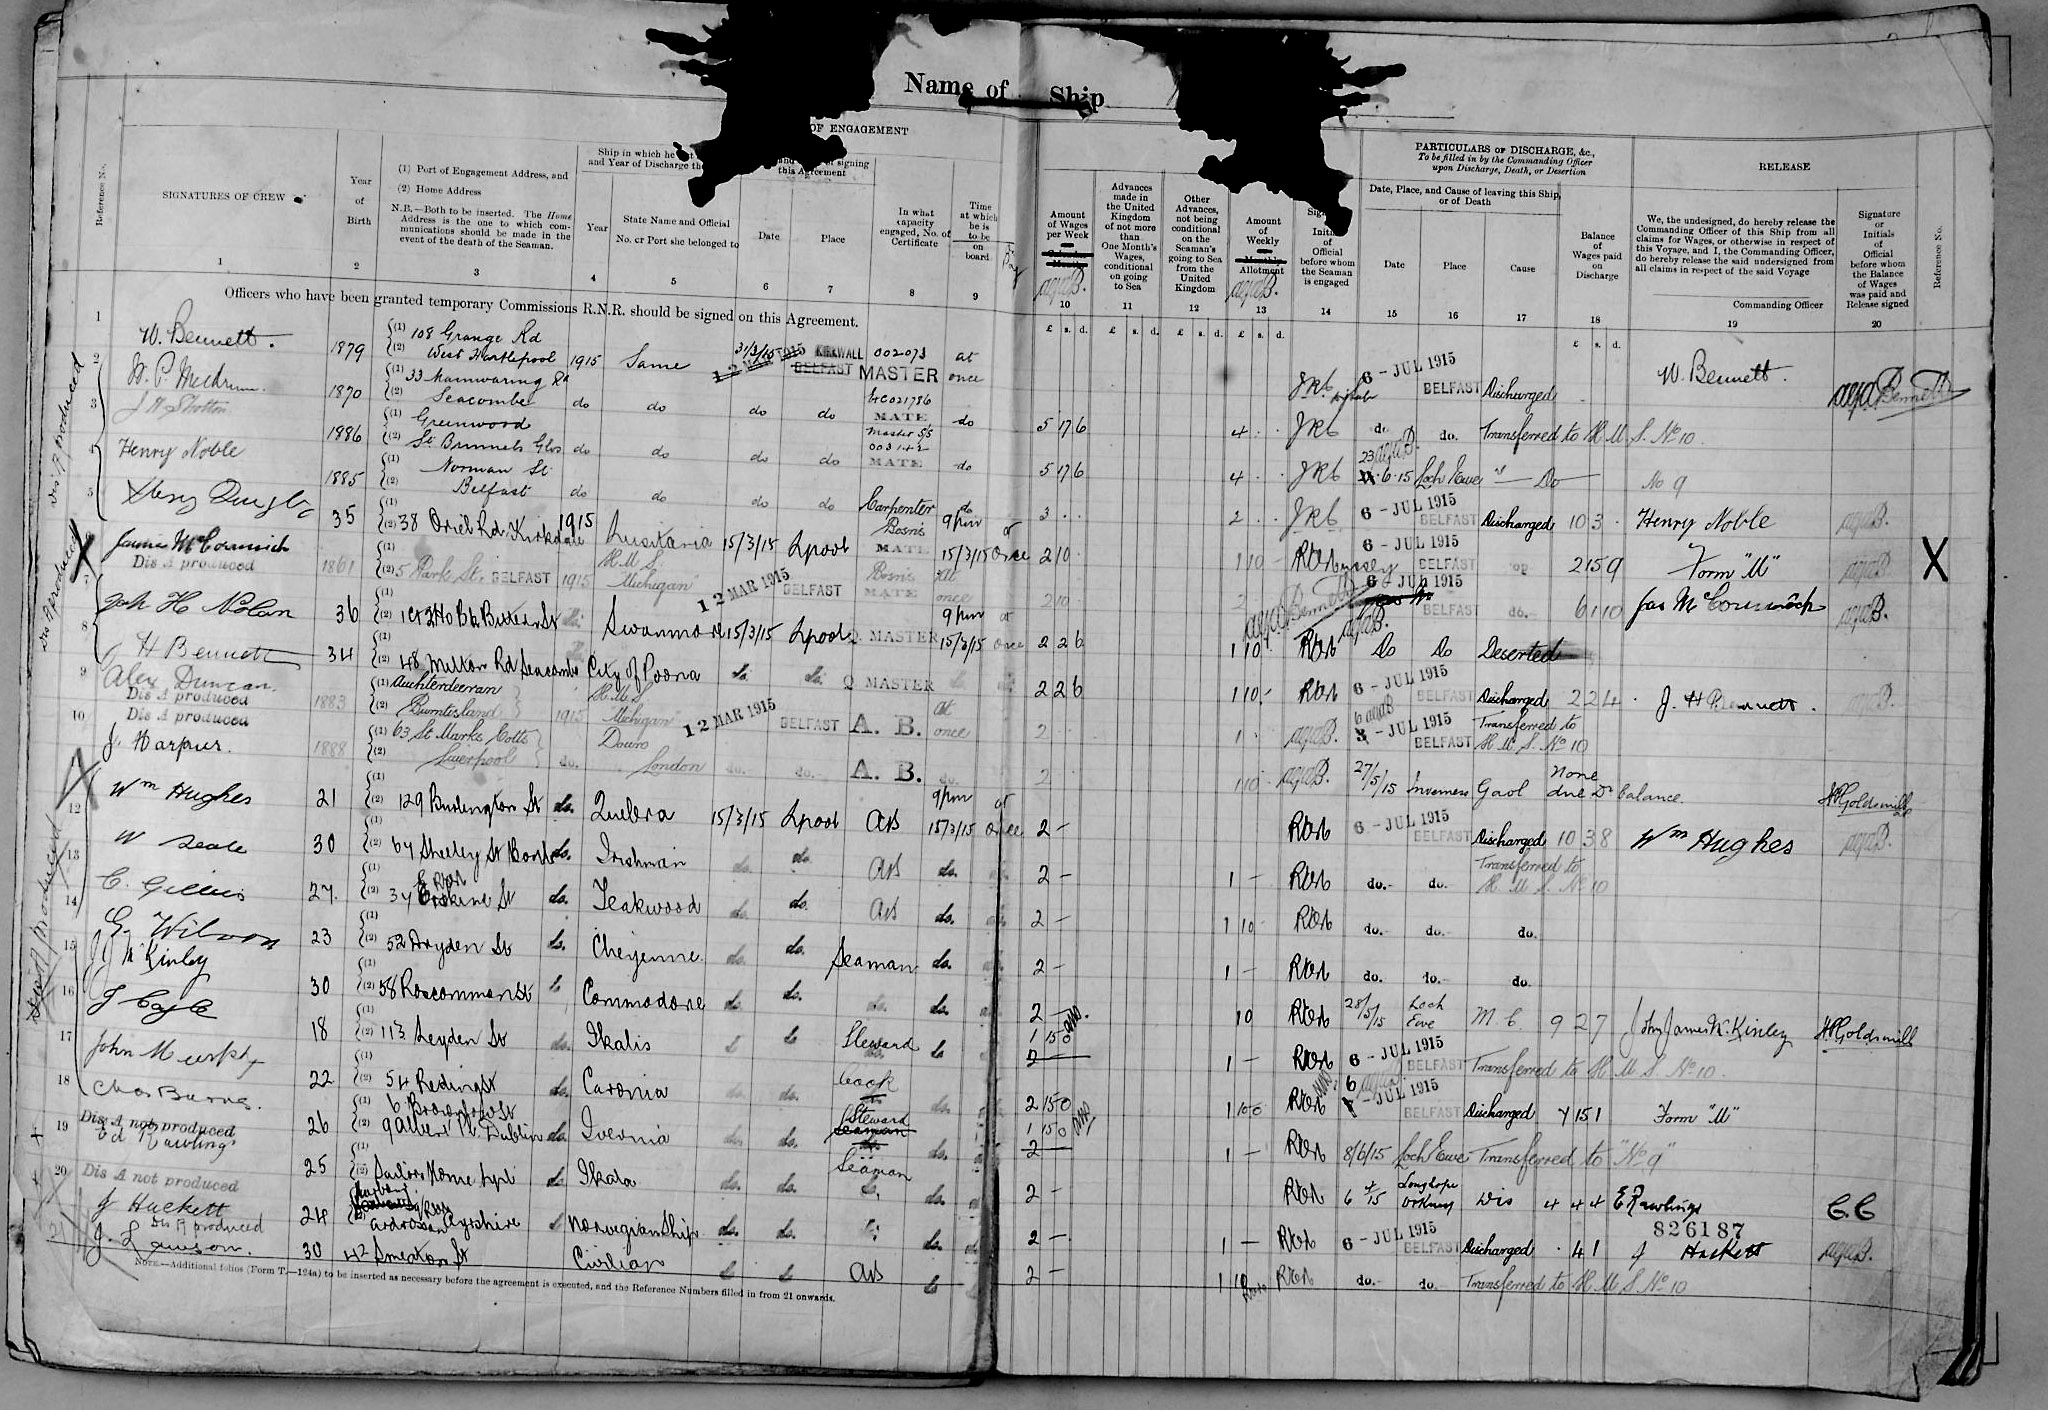 Name of Ship
OF ENGAGEMENT
Reference No.
SIGNATURES OF CREW
1
Year of Birth
2
(1) Port of Engagement Address, and
(2) Home Address
N.B.—Both to be inserted. The Home
Address is the one to which com-
munications should be made in the
event of the death of the Seaman.
3
Ship in which he
and Year of Discharge
Year
4
State Name and Official
No. or Port she belonged to
5
of signing
this Agreement
Date
6
Place
7
In what
capacity
engaged, No. of
Certificate
8
Time
at which
he is
to be
on
board
9
Amount
of Wages
per Week
10
Advances
made in
the United
Kingdom
of not more
than
One Month's
Wages,
conditional
on going
to Sea
11
Other
Advances,
not being
conditional
on the
Seaman's
going to Sea
from the
United
Kingdom
12
Amount
of
Weekly
Monthly
Allotment
13
of
Official
before whom
the Seaman
is engaged
14
PARTICULARS OF DISCHARGE, &c.,
To be filled in by the Commanding Officer
upon Discharge, Death, or Desertion
Date, Place, and Cause of leaving this Ship,
or of Death
Date
15
Place
16
Cause
17
Balance
of
Wages paid
on
Discharge
18
RELEASE
We, the undersigned, do hereby release the
Commanding Officer of this Ship from all
claims for Wages, or otherwise in respect of
this Voyage, and I, the Commanding Officer,
do hereby release the said undersigned from
all claims in respect of the said Voyage
Commanding Officer
19
Signature
or
Initials
of
Official
before whom
the Balance
of Wages
was paid and
Release signed
20
Reference No.
Officers who have been granted temporary Commissions R.N.R. should be signed on this Agreement.
£ s. d. £ s. d. £ s. d. £ s. d. £ s. d.
1 W. Bennett. 1879 (1) 108 Grange Rd
(2) West Hartlepool 1915 Same 31/3/15 KIRKWALL BELFAST 002073 MASTER at once 6 - JUL 1915 BELFAST Discharged W. Bennett.
2 1870 (1) 33 Mainwaring Rd
(2) Seacombe do do do do MATE do 5 17 6 4 do. do. Transferred to H M S. No 10.
3 1886 (1) Greenwood
(2) St Brunnels Glos do do do do MATE do 5 17 6 4 6.15 Loch Ewe Do No 9
4 Henry Noble 1885 (1) Norman St
(2) Belfast do do do do Carpenter do 3 2 6 - JUL 1915 BELFAST Discharged 10 3 Henry Noble
5 35 (2) 38 Oriel Rd Kirkdale 1915 Lusitania 15/3/15 Lpool Bosn's MATE 9 pm 15/3/15 or once 2 10 1 10 6 - JUL 1915 BELFAST 2 15 9 Form "M"
James McCormick
Dis A produced 1861 (2) 5 Park St. BELFAST 1915 H.M.S. Michigan 12 MAR 1915 BELFAST Bosn's MATE At once 2 10 2 6 - JUL 1915 BELFAST do. 6 1 10 Jas McCormick
7 H Nolan 36 Swanmore 15/3/15 Lpool Q MASTER 9 pm 15/3/15 or once 2 2 6 1 10 Do Do Deserted
8 H Bennett 34 (2) 48 Milton Rd Seacombe City of Poona Q MASTER 2 2 6 1 10 6 - JUL 1915 BELFAST Discharged 2 2 4 J. H Bennett.
9 Alex Duncan.
Dis A produced 1883 (1) Auchterdeeran
(2) Burntisland 1915 H.M.S Michigan 12 MAR 1915 BELFAST A. B. at once 2 1 - JUL 1915 BELFAST Transferred to H. M. S. No 10
Dis A produced
10 J. Harpur. 1888 (1) 63 St Marks Cotts
(2) Liverpool do. Douro London do. do. A. B. do. 2 1 10 27/5/15 Inverness Gaol None due Dr balance. Goldsmith
Wm Hughes 21 (2) 129 Burlington St do. Quebra 15/3/15 Lpool AB 9 pm 15/3/15 or once 2 6 - JUL 1915 BELFAST Discharged 10 3 8 Wm Hughes
12 W Seale 30 (2) 67 Shelley St Bootle do. Irishman do. do. AB do. 2 1 do. do. Transferred to H. M S. No 10
13 C. Gillies 27. (2) 37 Erskine St do. Teakwood do. do. AB do. 2 1 10 do. do. do.
14 G Wilson 23 (2) 52 Dryden St do. Cheyenne. do. Seaman do. 2 1 do. do. do.
15 J J McKinley 30 (2) 58 Roscommon St Commodore do. do. do. 2 10 28/5/15 Loch Ewe M. C 9 2 7 John James McKinley Goldsmith
16 18 (2) 113 Leyden St do. Ikalis Steward 1 15 0 2 1 6 - JUL 1915 BELFAST Transferred to H M S. No 10.
17 John Murphy 22 (2) 54 Reding St do. Caronia do. Cook do. 2 15 0 1 10 0 - JUL 1915 BELFAST Discharged 7 15 1 Form "M"
18 Chas Burns. 26 (1) 6 Brownlow St
(2) 9 Albert Pl. Dublin do. Ivernia do. do. Steward Seaman do. 1 15 0 2 1 8/6/15 Loch Ewe Transferred to "No 9"
Dis A not produced
19 Ed Rawlings 25 (2) Sailors Home Lpl do. Ikala do. do. Seaman do. 2 6 4/15 Longhope Orkney Dis 4 4 4 E Rawlings C. C
20 Dis A not produced
J Hackett 24 Ardrossan Ayrshire Norwegian Ship do. do. do. 2 1 6 - JUL 1915 BELFAST Discharged 4 1 826187 J Hackett
Dis A produced
21 J. Lawson. 30 42 Smeaton St Civilian AB 2 1 10 do. do. Transferred to H M S No 10
NOTE.—Additional folios (Form T.—124a) to be inserted as necessary before the agreement is executed, and the Reference Numbers filled in from 21 onwards.